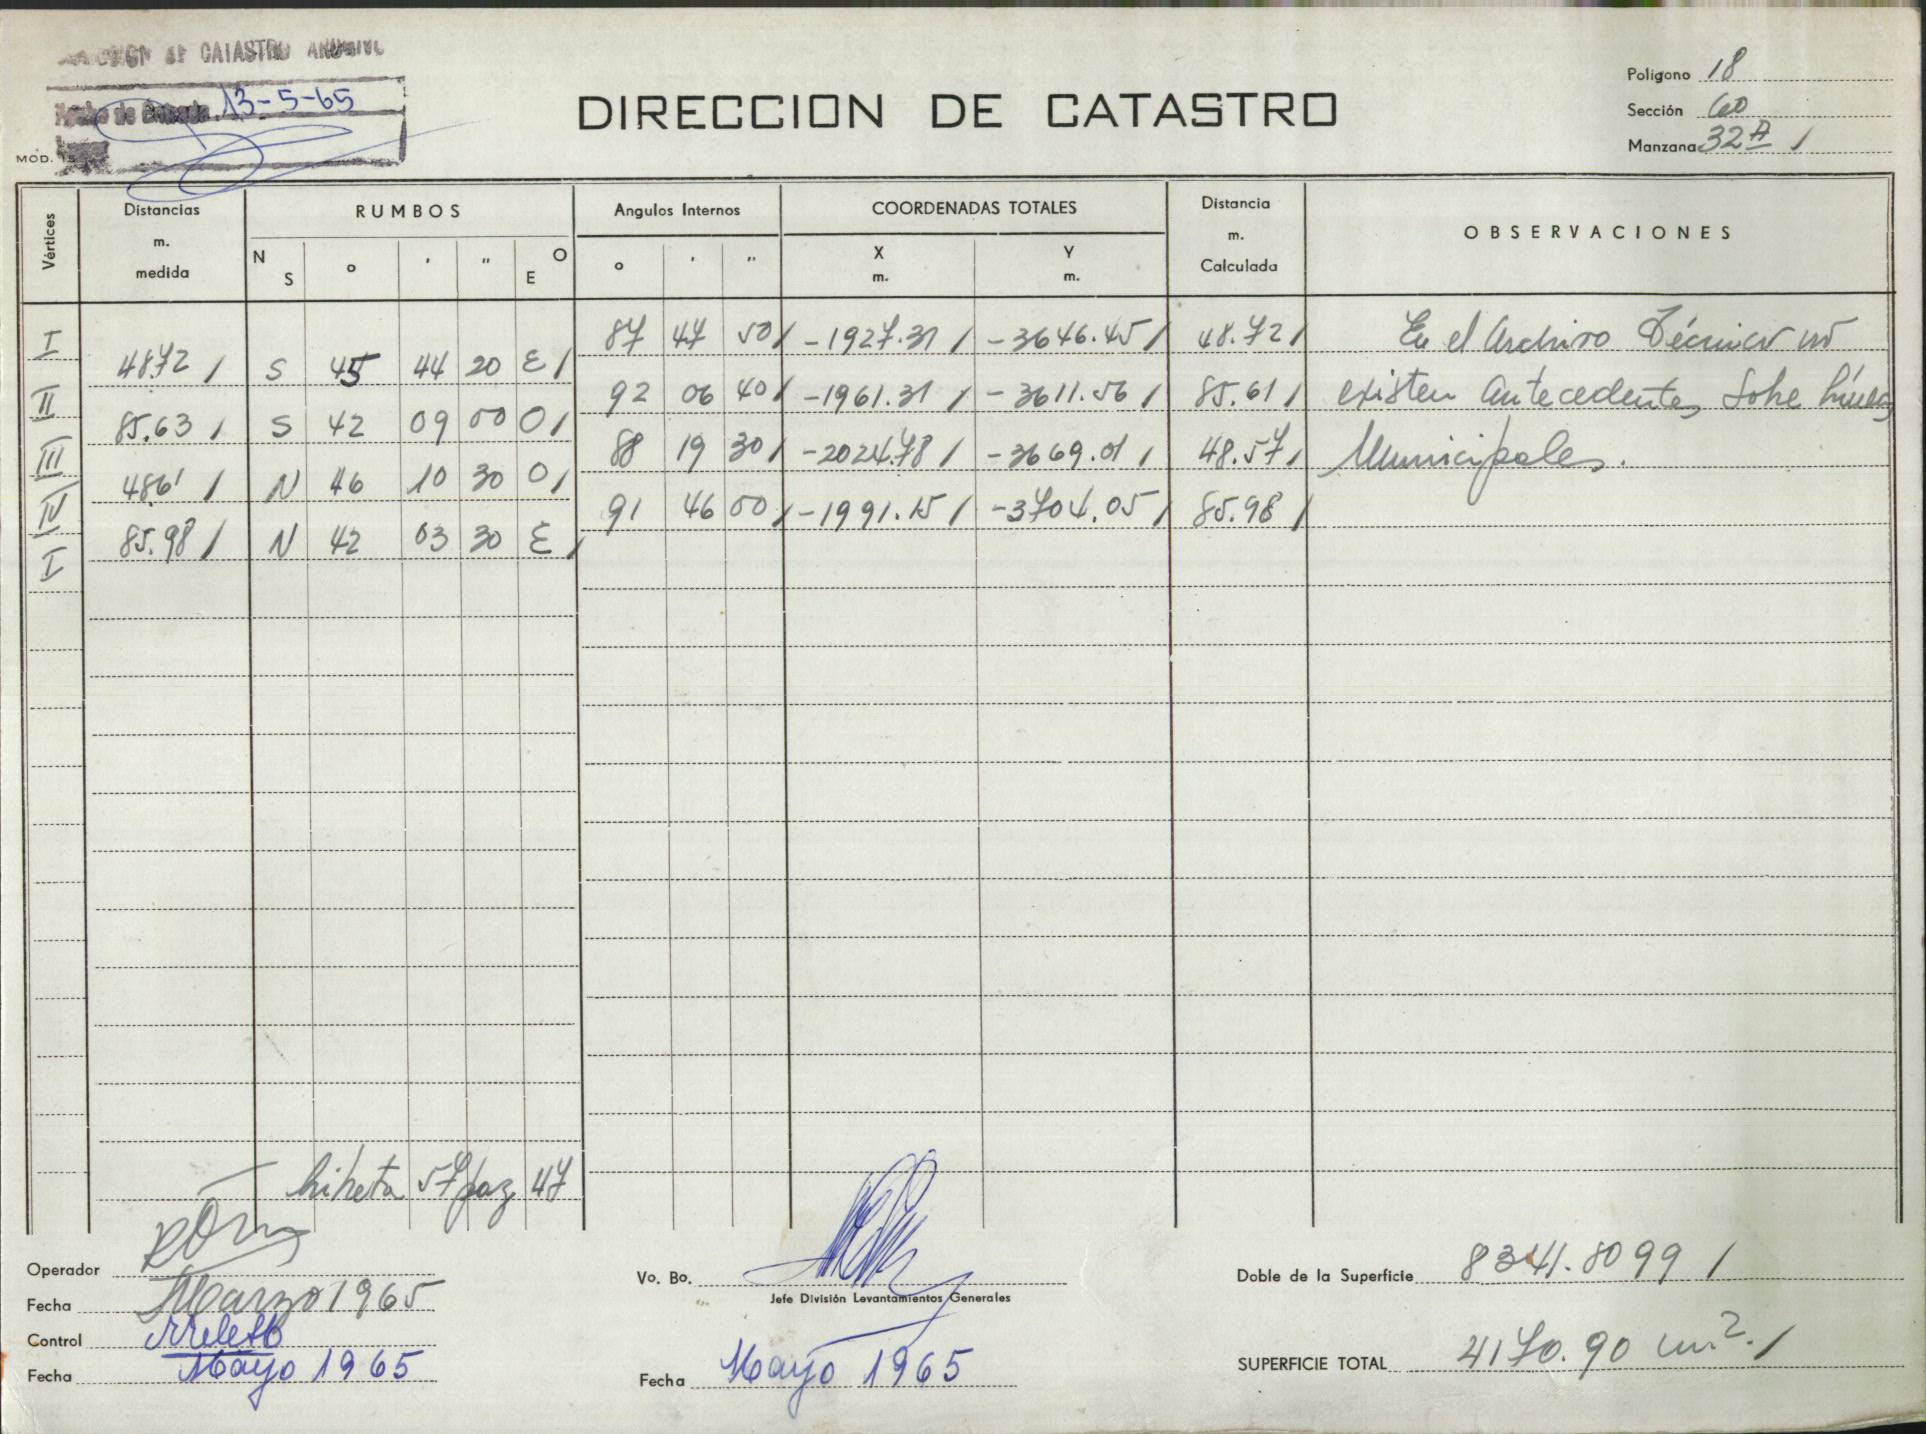 DE CATASTRO
13-5-65
MOD. 15
DIRECCION DE CATASTRO
Polígono 18
Sección 60
Manzana 32 A /
Vértices
Distancias m. medida
RUMBOS
N S ° ' " E O
Angulos Internos
° ' "
COORDENADAS TOTALES
X m. Y m.
Distancia m. Calculada
OBSERVACIONES
I 87 47 50 / -1927.31 / -3646.45 / 48.72 / En el Archivo Técnico no
48.72 / S 45 44 20 E /
II 92 06 40 / -1961.31 / -3611.56 / 85.61 / existen antecedentes sobre líneas
85.63 / S 42 09 00 O /
III 88 19 30 / -2024.78 / -3669.01 / 48.57 / Municipales.
48.61 / N 46 10 30 O /
IV 91 46 00 / -1991.15 / -3704.05 / 85.98 /
85.98 / N 42 03 30 E /
I
libreta 57 pag 47
Operador
Fecha Marzo 1965
Control
Fecha Mayo 1965
Vo. Bo.
Jefe División Levantamientos Generales
Fecha Mayo 1965
Doble de la Superficie 8341.8099 /
SUPERFICIE TOTAL 4170.90 m². /